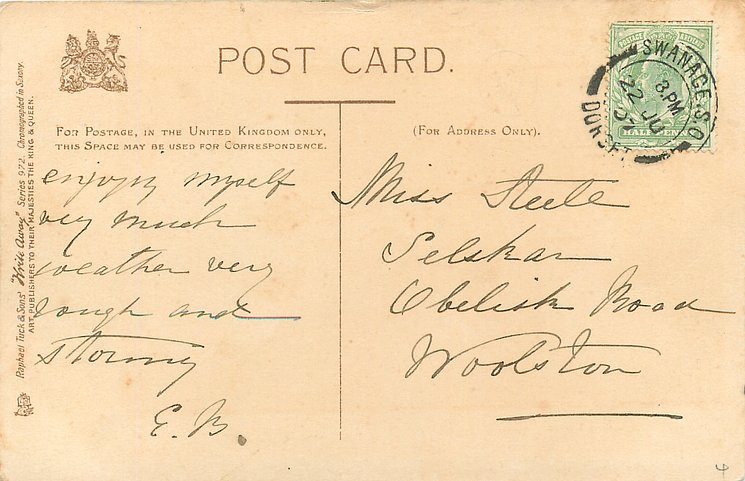 POST CARD.
FOR POSTAGE, IN THE UNITED KINGDOM ONLY,
THIS SPACE MAY BE USED FOR CORRESPONDENCE.
(FOR ADDRESS ONLY).
enjoyg myself
very much
weather very
rough and
stormy
E. B.
Miss Steele
Selskar
Obelisk Road
Woolston
Raphael Tuck & Sons' "Write Away" Series 972. Chromographed in Saxony.
ART PUBLISHERS TO THEIR MAJESTIES THE KING & QUEEN.
POSTAGE
HALFPENNY
SWANAGE S.O.
8.PM
22 JU
DORSET
4